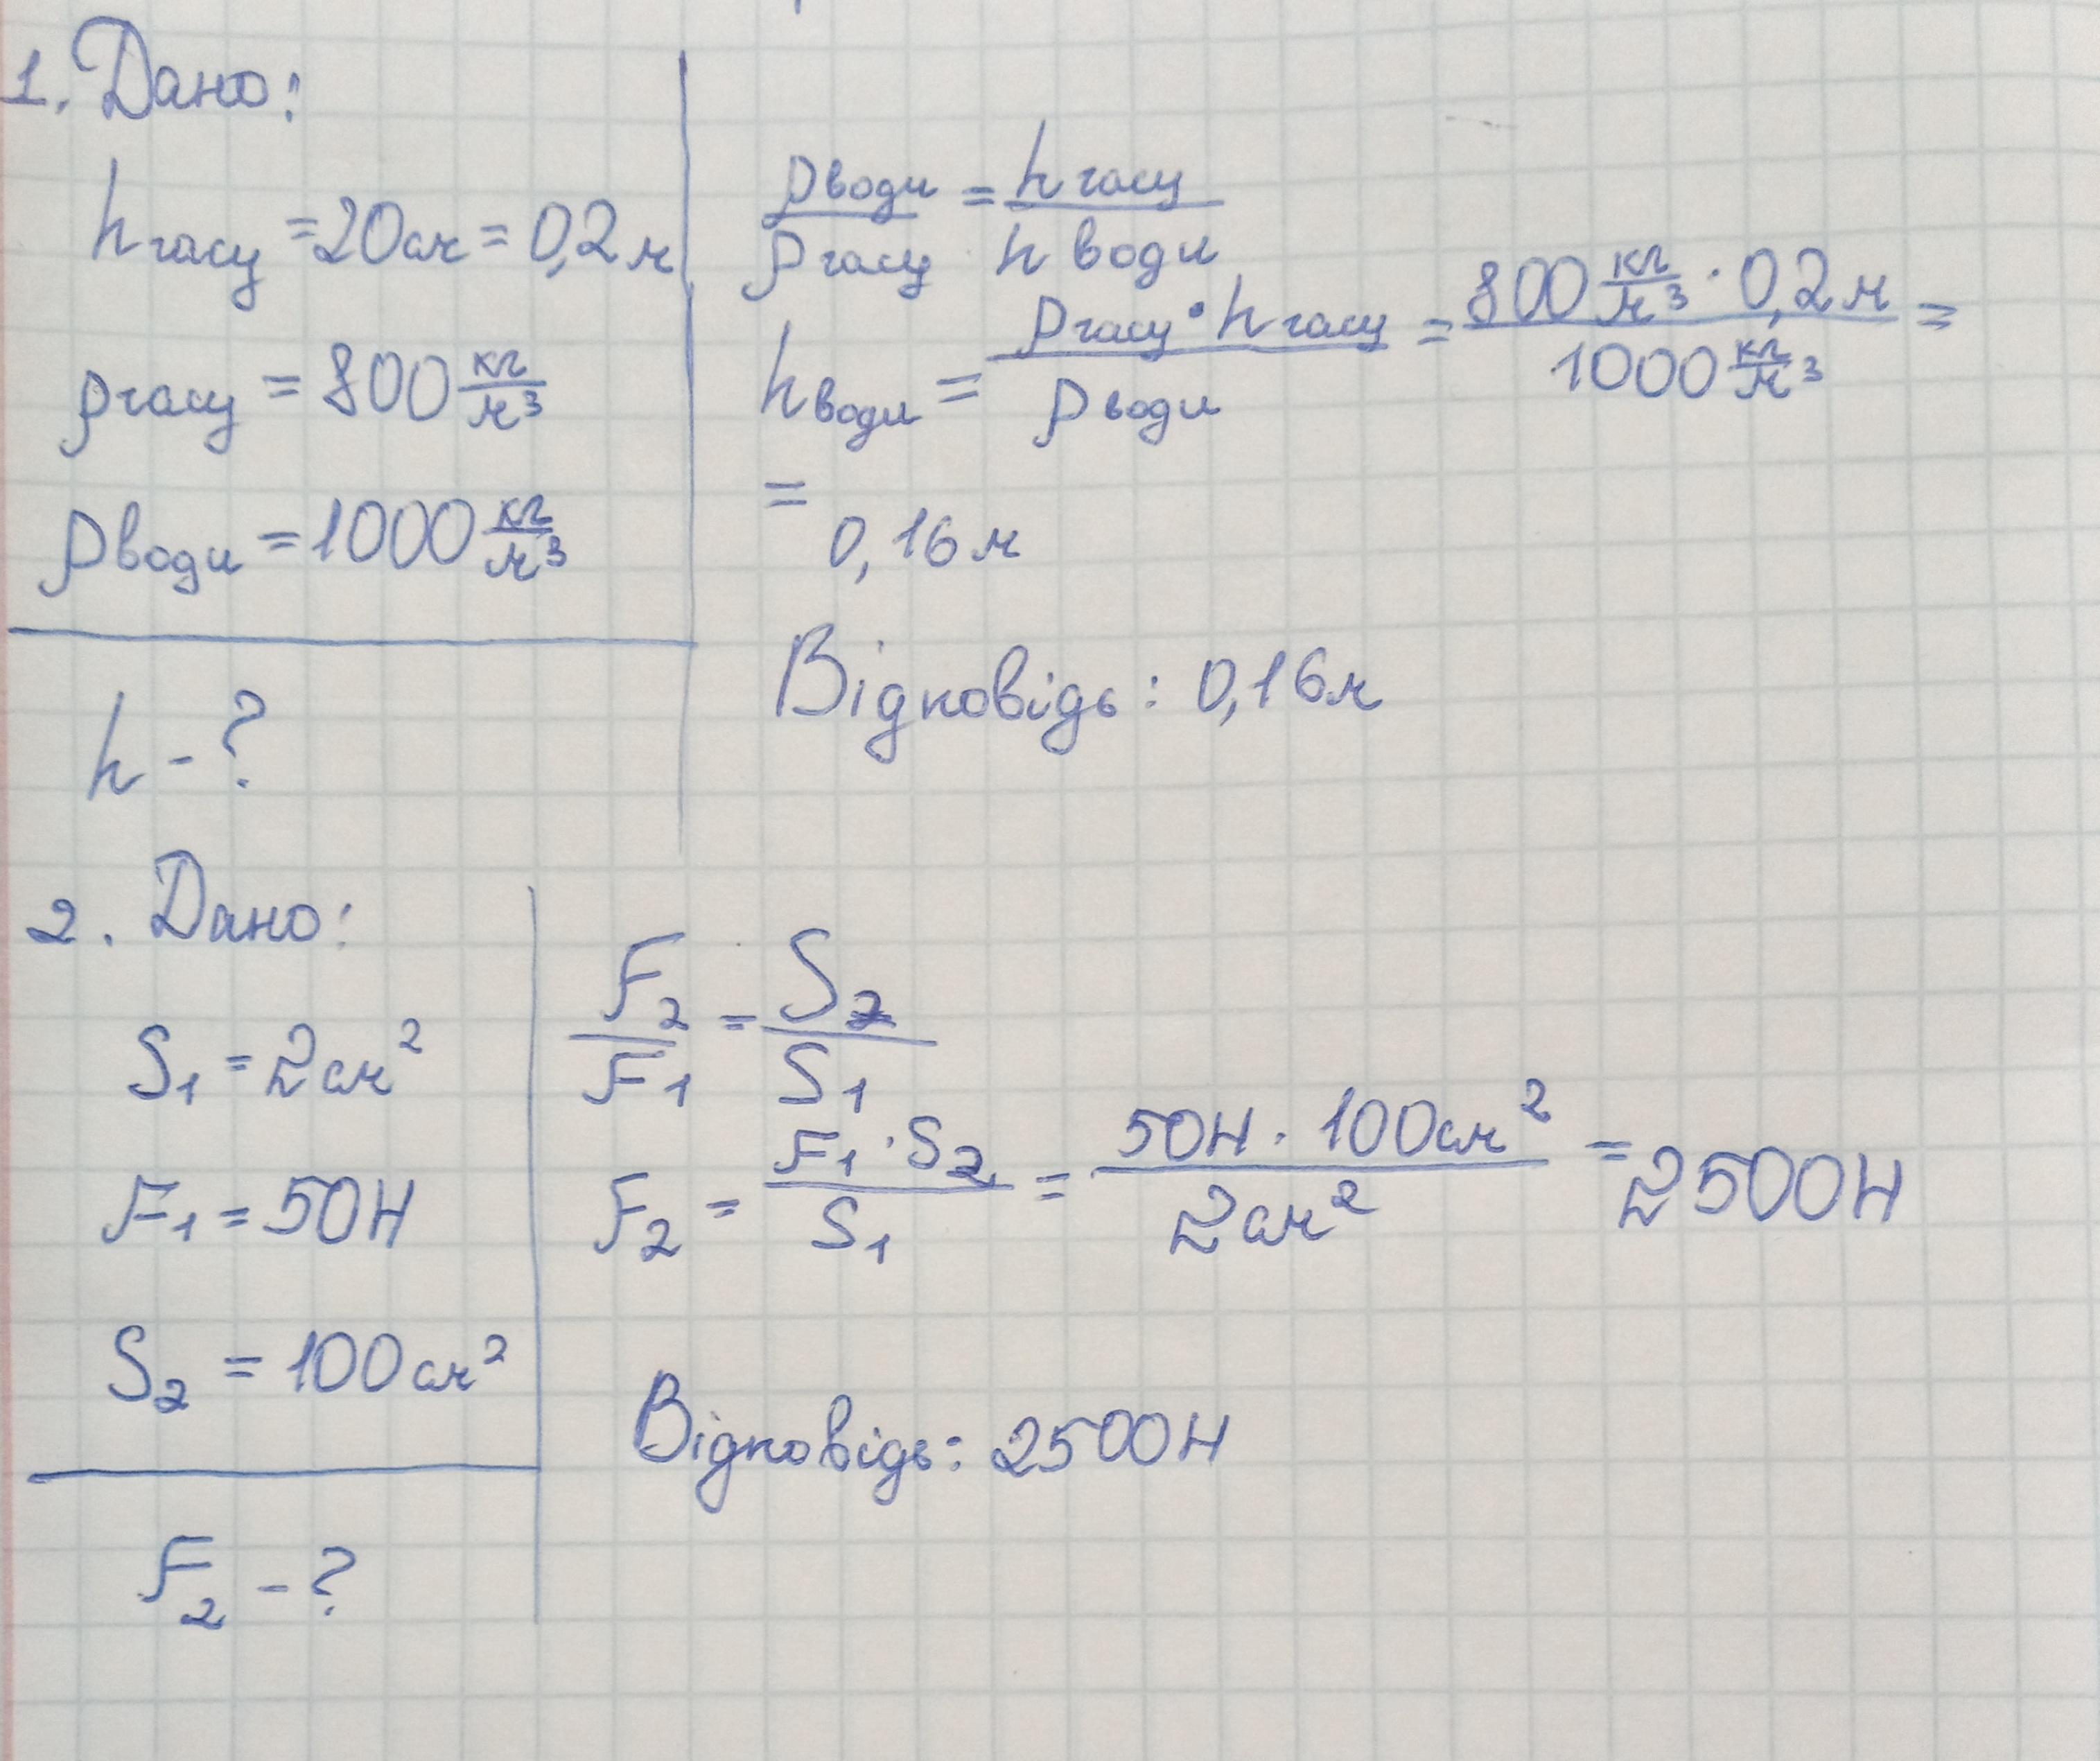 1. Дано:
hгасу = 20см = 0,2м
ρгасу = 800 кг/м³
ρводи = 1000 кг/м³
h - ?
ρводи/ρгасу = hгасу/hводи
hводи = ρгасу · hгасу/ρводи = 800 кг/м³ · 0,2м/1000 кг/м³ =
= 0,16м
Відповідь: 0,16м
2. Дано:
S₁ = 2см²
F₁ = 50Н
S₂ = 100см²
F₂ - ?
F₂/F₁ = S₂/S₁
F₂ = F₁ · S₂/S₁ = 50Н · 100см²/2см² = 2500Н
Відповідь: 2500Н